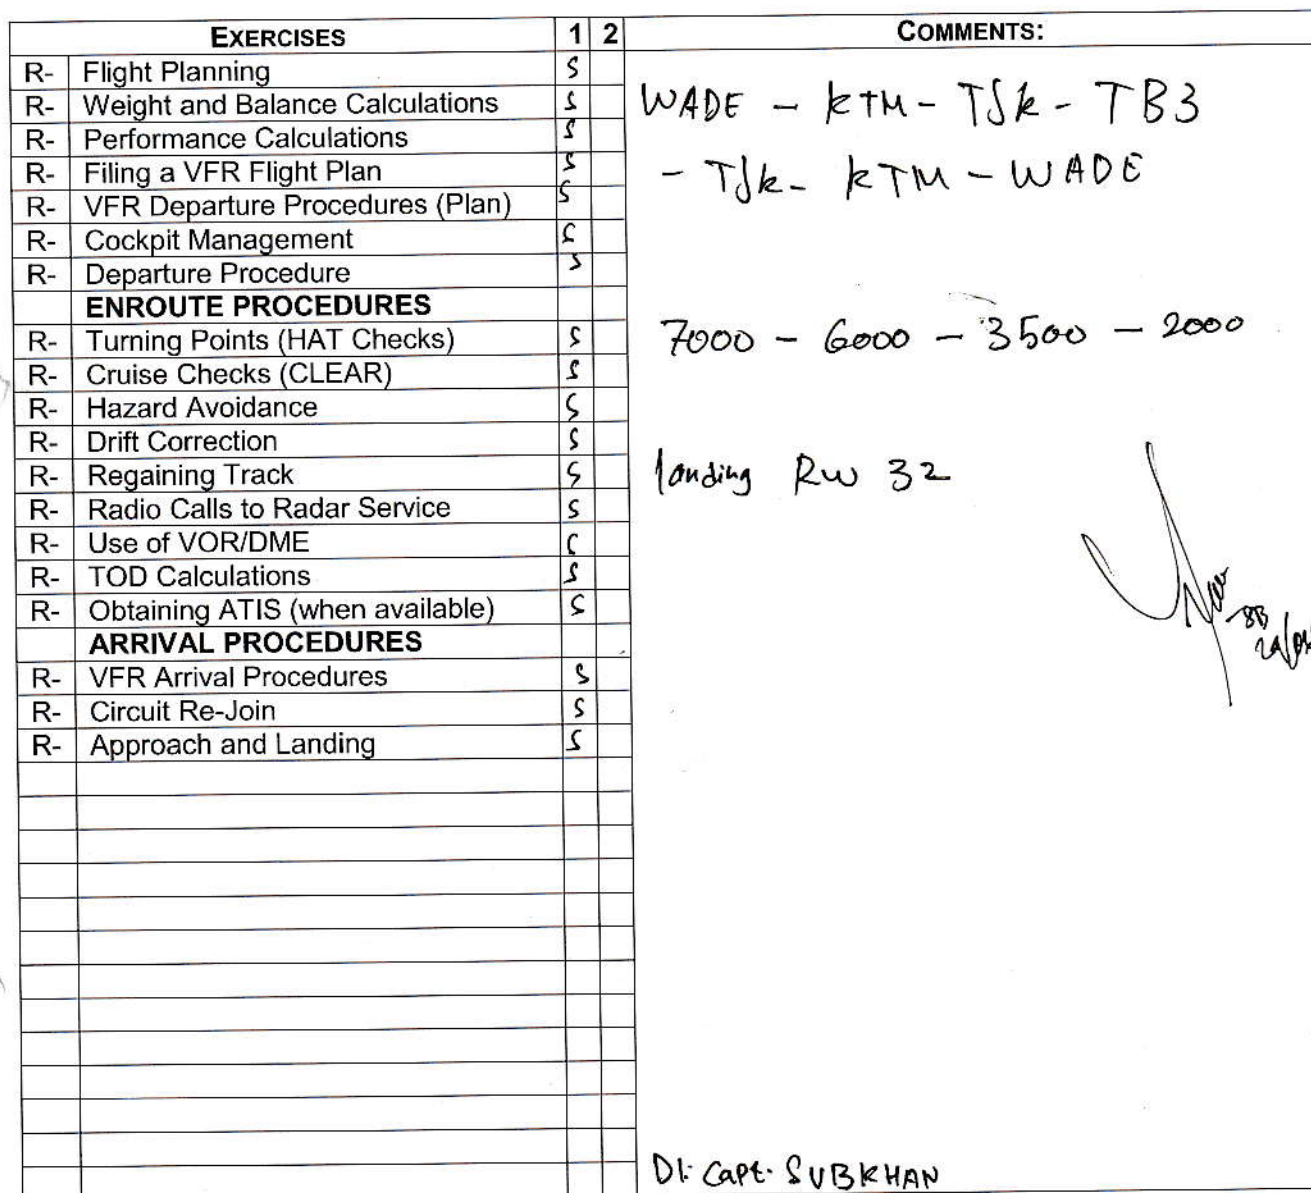 EXERCISES 1 2 COMMENTS:
R- Flight Planning S
R- Weight and Balance Calculations S
R- Performance Calculations S
R- Filing a VFR Flight Plan S
R- VFR Departure Procedures (Plan) S
R- Cockpit Management S
R- Departure Procedure S
ENROUTE PROCEDURES
R- Turning Points (HAT Checks) S
R- Cruise Checks (CLEAR) S
R- Hazard Avoidance S
R- Drift Correction S
R- Regaining Track S
R- Radio Calls to Radar Service S
R- Use of VOR/DME S
R- TOD Calculations S
R- Obtaining ATIS (when available) S
ARRIVAL PROCEDURES
R- VFR Arrival Procedures S
R- Circuit Re-Join S
R- Approach and Landing S
WADE - KTM - TSK - TB3
- TSK - KTM - WADE
7000 - 6000 - 3500 - 2000
landing RW 32
DI: Capt. SUBKHAN